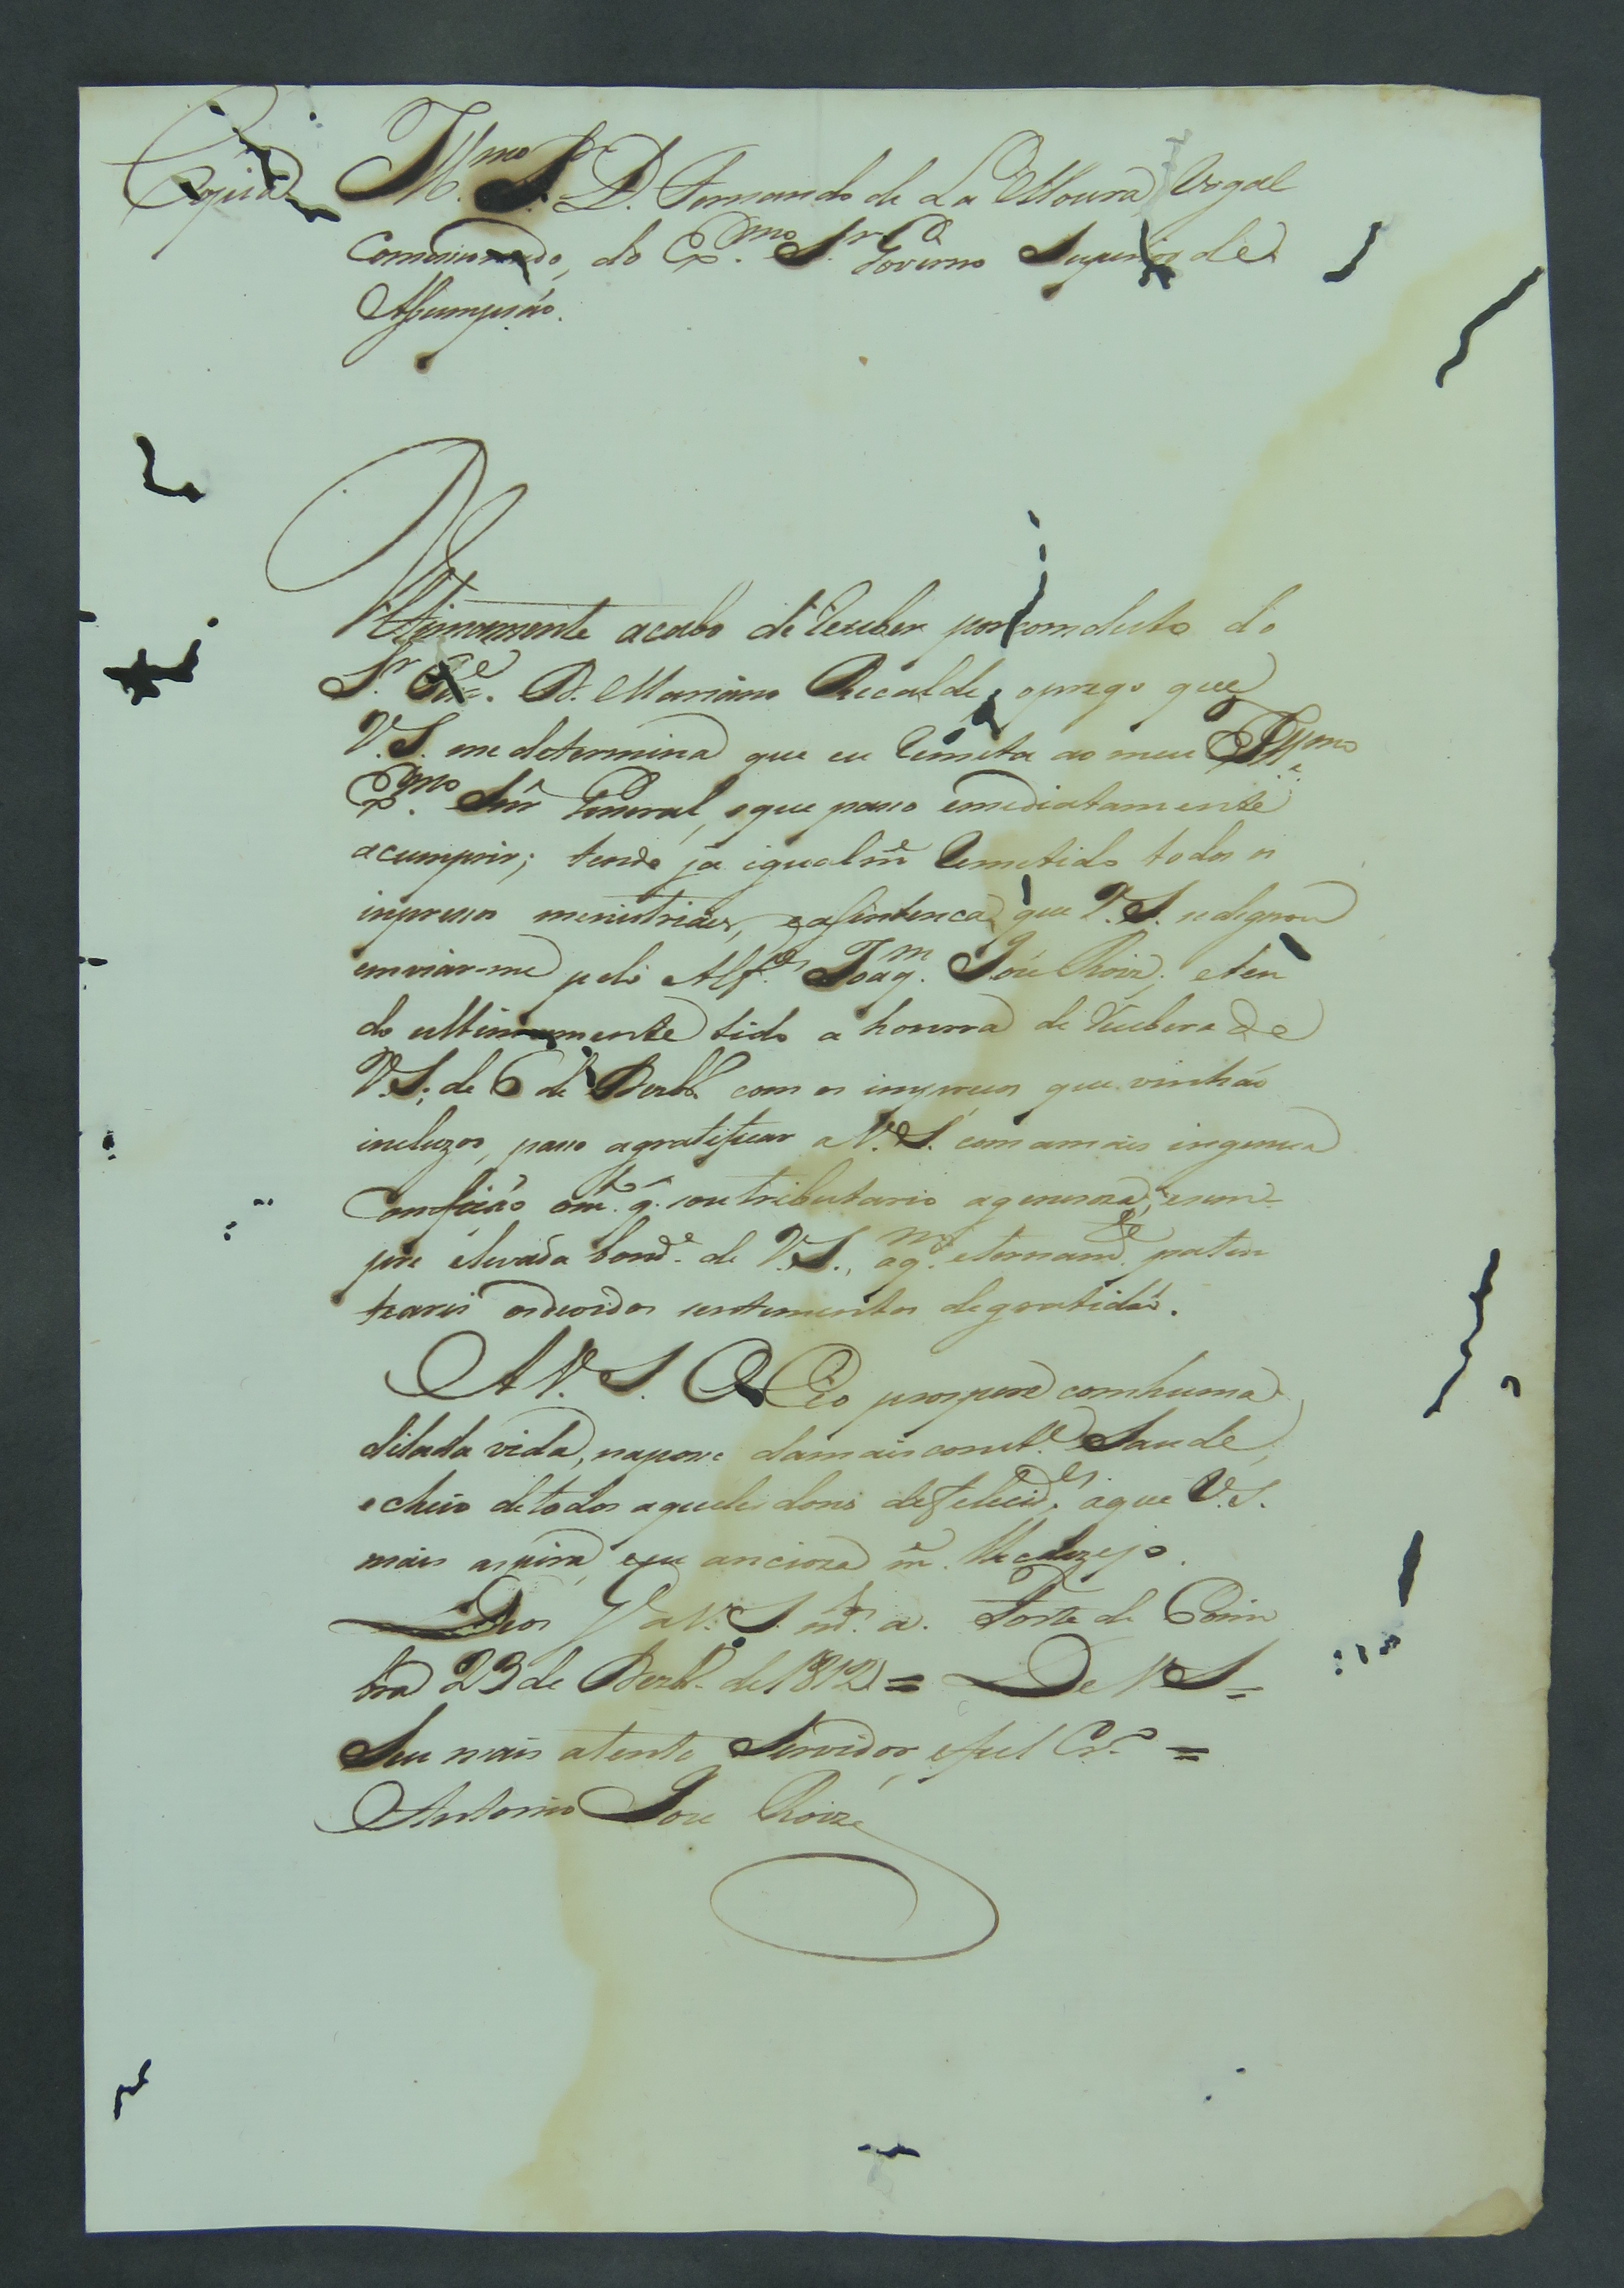 Copia
Ill.mo Sr. D. Fernando de La Moura, Vogal
Comissionado, do Ex.mo Sr. Governo Superior de
Assumpsão.
Ultimamente acabo de Receber por comducto do
Sr. D. Mariano Recalde, o prego que
V.S. me determina que eu Remeta ao meu Ill.mo
Ex.mo Snr General, o que passo emediatamente
a cumprir; tendo ja igualm.e Remetido todos os
inpressos menistriaes, e a sintenca que V.S. se dignou
enviar-me pelo Alf.es Joaq.m José Roiz; e ten
do ultimamente tido a honrra de Receber a de
V.S. de 6 de Dezbr.o com os impressos que vinhão
incluzos, passo a gratificar a V.S. com a mais ingenua
Confição om.to q. sou tributario a generoza, e sem-
pre elevada bond.e de V.S., aq.m eternam.te paten
tearei os devidos sentimentos de gratidão.
A V.S. o Ceo prospere com huma
dilatada vida, na posse da mais const.e Saude,
e cheio de todos aqueles dons de felecid.es, a que V.S.
mais aspira, e eu ancioza m.e lhe dezejo.
Deos G.e a V.S. m.s a. Forte de Coim
bra 23 de Dezbr.o de 1812 = De V.S. =
Seu mais atento Servidor, e fiel Cr.o =
Antonio Jose Roiz